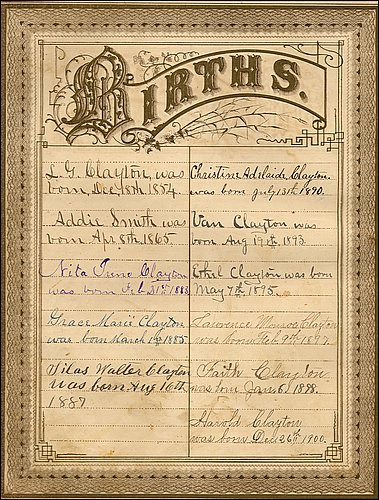 BIRTHS.
L. G. Clayton, was
born, Dec 18th 1854.
Addie Smith was
born Apr. 8th 1865.
Nita Irene Clayton
was born Feb 21st 1883
Grace Marie Clayton
was born March 1st 1885
Silas Walter Clayton
was born Aug 16th
1887
Christine Adelaide Clayton
was born July 13th 1890.
Van Clayton was
born Aug 19th 1893.
Ethel Clayton was born
May 7th 1895.
Lawrence Monroe Clayton
was born Feb. 9th 1897
Faith Clayton
was born Jan. 6, 1898.
Harold Clayton
was born Dec 26th 1900.